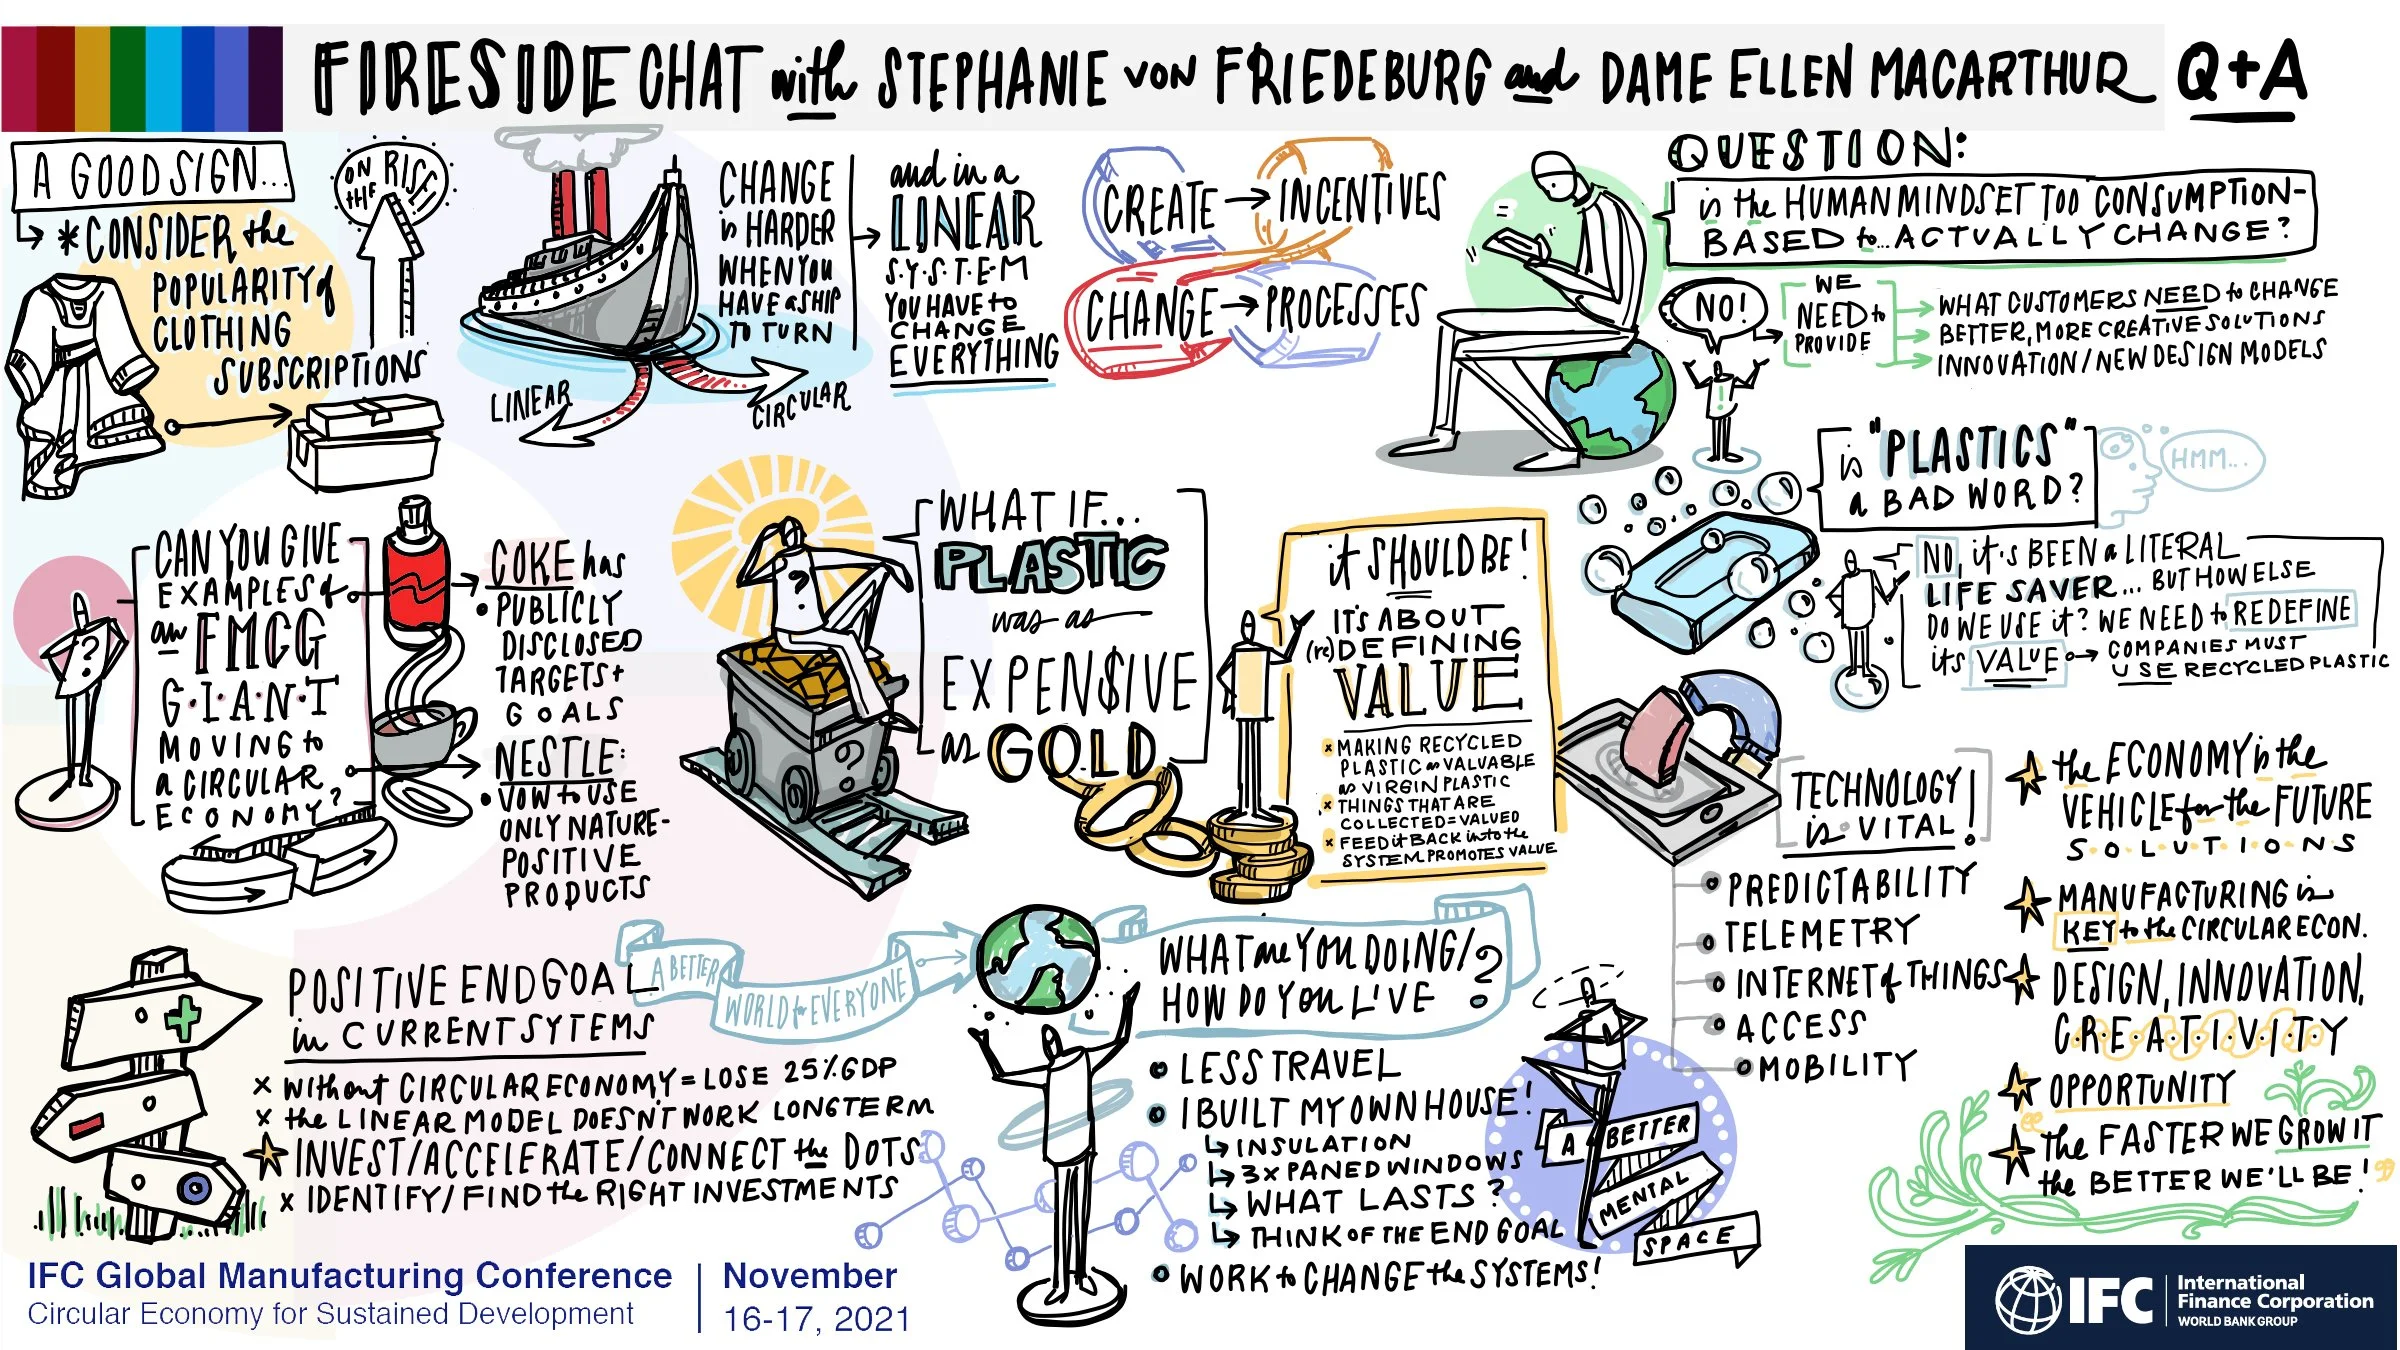 FIRESIDE CHAT with STEPHANIE VON FRIEDEBURG and DAME ELLEN MACARTHUR Q+A
A GOOD SIGN...
* CONSIDER the
POPULARITY of
CLOTHING
SUBSCRIPTIONS
ON
the
RISE!
LINEAR
CIRCULAR
CHANGE
is HARDER
WHEN YOU
HAVE a SHIP
TO TURN
and in a
LINEAR
S.Y.S.T.E.M
YOU HAVE to
CHANGE
EVERYTHING
CREATE → INCENTIVES
CHANGE → PROCESSES
QUESTION:
is the HUMAN MINDSET TOO CONSUMPTION-
BASED to... ACTUALLY CHANGE?
NO!
WE
NEED to
PROVIDE
WHAT CUSTOMERS NEED to CHANGE
BETTER, MORE CREATIVE SOLUTIONS
INNOVATION/NEW DESIGN MODELS
is "PLASTICS"
a BAD WORD?
HMM...
NO, it's BEEN a LITERAL
LIFE SAVER... BUT HOW ELSE
DO WE USE it? WE NEED to REDEFINE
its VALUE → COMPANIES MUST
USE RECYCLED PLASTIC
?
CAN YOU GIVE
EXAMPLES of
an FMCG
G.I.A.N.T
MOVING to
a CIRCULAR
ECONOMY?
COKE has
• PUBLICLY
DISCLOSED
TARGETS +
GOALS
NESTLE:
• VOW to USE
ONLY NATURE-
POSITIVE
PRODUCTS
?
?
WHAT IF...
PLASTIC
was as
EXPEN$IVE
as GOLD
it SHOULD BE!
IT'S ABOUT
(re)DEFINING
VALUE
x MAKING RECYCLED
PLASTIC as VALUABLE
as VIRGIN PLASTIC
x THINGS THAT ARE
COLLECTED = VALUED
x FEED it BACK into the
SYSTEM PROMOTES VALUE
TECHNOLOGY
is VITAL!
PREDICTABILITY
TELEMETRY
INTERNET of THINGS
ACCESS
MOBILITY
the ECONOMY is the
VEHICLE for the FUTURE
S.O.L.U.T.I.O.N.S
MANUFACTURING is
KEY to the CIRCULAR ECON.
DESIGN, INNOVATION,
C.R.E.A.T.I.V.I.T.Y
OPPORTUNITY
"the FASTER WE GROW IT
the BETTER WE'LL BE!"
POSITIVE END GOAL
in CURRENT SYTEMS
x WITHOUT CIRCULAR ECONOMY = LOSE 25% GDP
x the LINEAR MODEL DOESN'T WORK LONGTERM
INVEST/ACCELERATE/CONNECT the DOTS
x IDENTIFY/FIND the RIGHT INVESTMENTS
A BETTER
WORLD for EVERYONE
WHAT are YOU DOING/
HOW DO YOU LIVE?
• LESS TRAVEL
• I BUILT MY OWN HOUSE!
INSULATION
3x PANED WINDOWS
WHAT LASTS?
THINK OF THE END GOAL
• WORK to CHANGE the SYSTEMS!
A BETTER
MENTAL
SPACE
IFC Global Manufacturing Conference
Circular Economy for Sustained Development
November
16-17, 2021
IFC
International
Finance Corporation
WORLD BANK GROUP